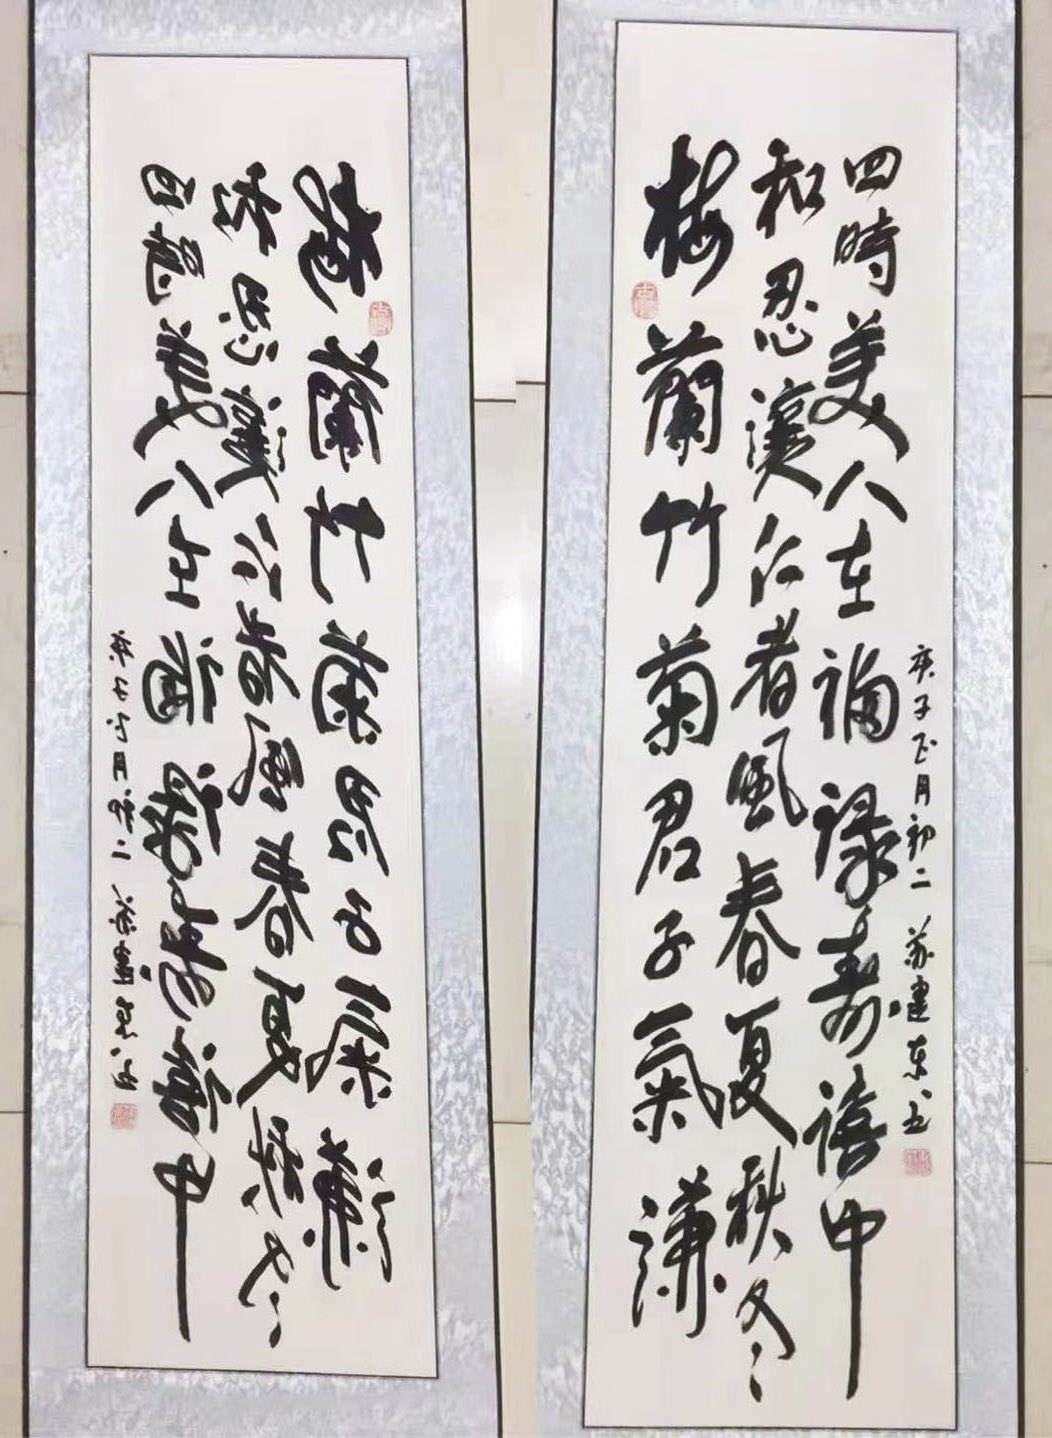 梅蘭竹菊君子氣謙
和忍讓仁者風春夏秋冬
四時美人在福禄寿禧中
庚子正月初二 苏建东书
梅蘭竹菊君子氣謙
和忍讓仁者風春夏秋冬
四時美人在福禄寿禧中
庚子正月初二 苏建东书